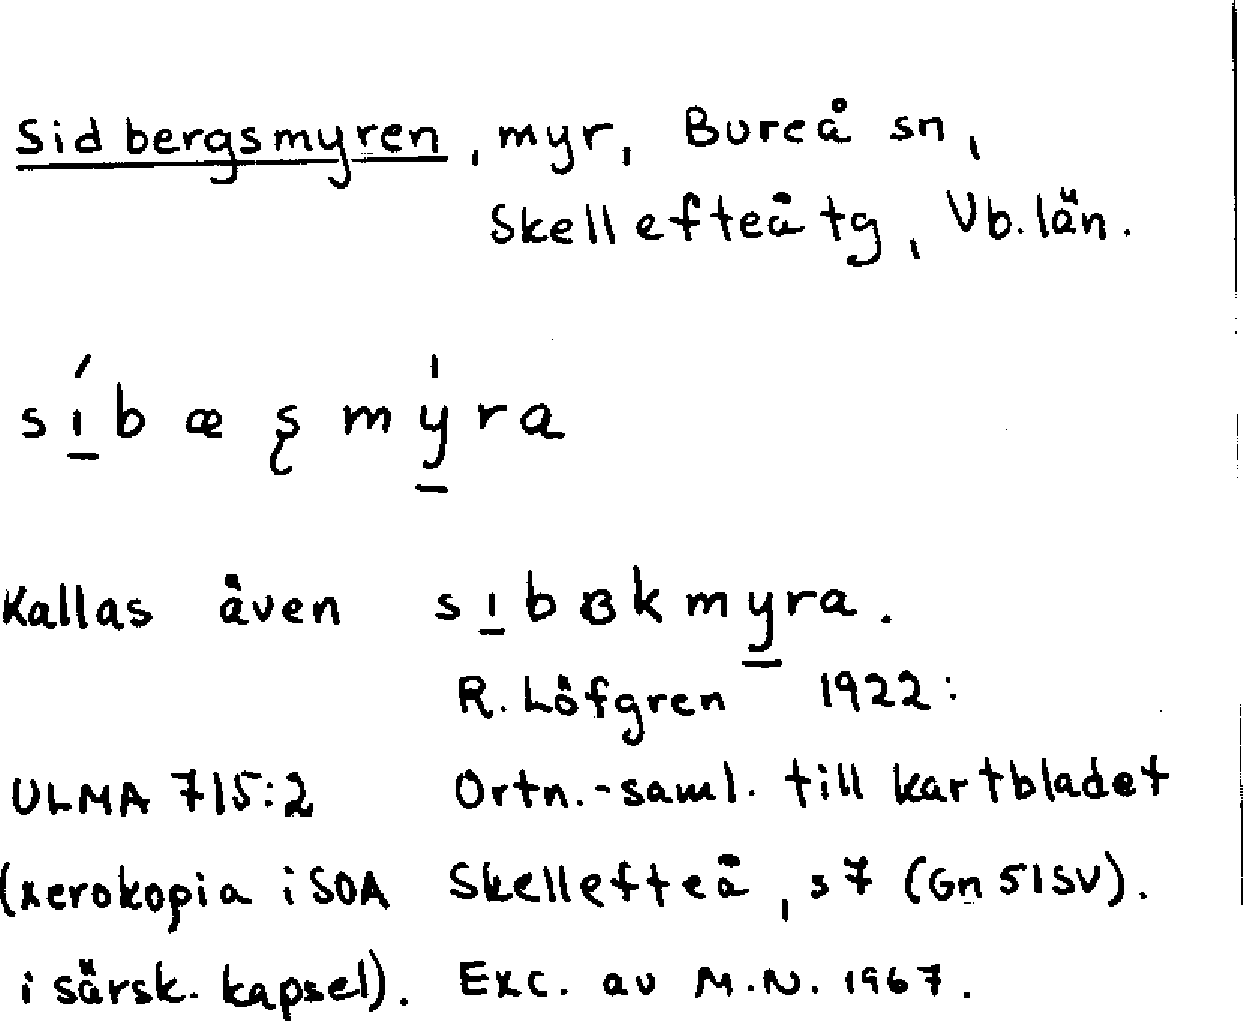 Sidbergsmyren, myr, Bureå sn,
Skellefteå tg, Vb. län.
sı́bæʂmýra
Kallas även sıbɞkmyra.
R. Löfgren 1922:
ULMA 715:2 Ortn.-saml. till kartbladet
(xerokopia i SOA Skellefteå, s 7 (Gn 51SV).
i särsk. kapsel). Exc. av M.N. 1967.